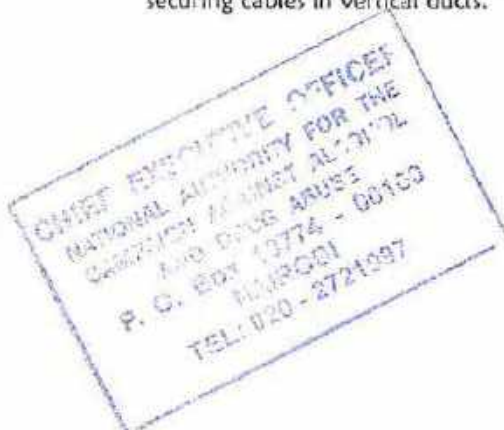 securing cables in vertical ducts.
CHIEF EXECUTIVE OFFICER
NATIONAL AUTHORITY FOR THE
CAMPAIGN AGAINST ALCOHOL
AND DRUG ABUSE
P. O. BOX 10774 - 00100
NAIROBI
TEL: 020 - 2721997